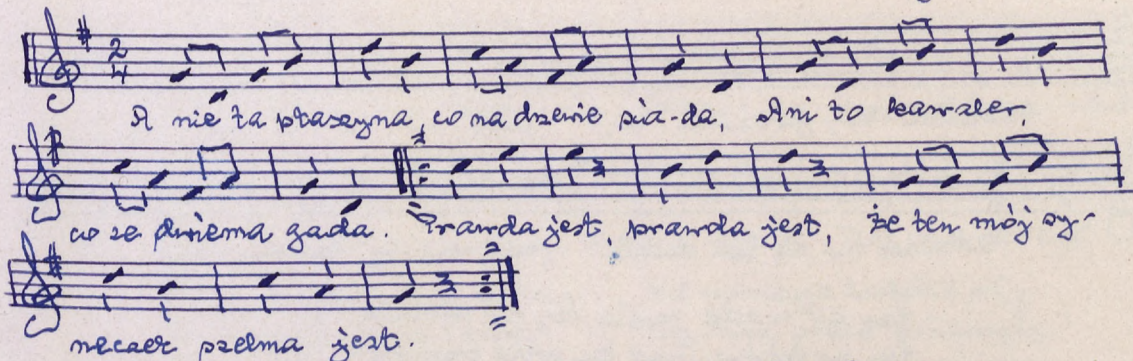 2
4
A nie ta ptaszyna, co na drzewie sia-da, Ani to kawaler,
co ze dwiema gada. Prawda jest, prawda jest, że ten mój sy-
neczek szelma jest.